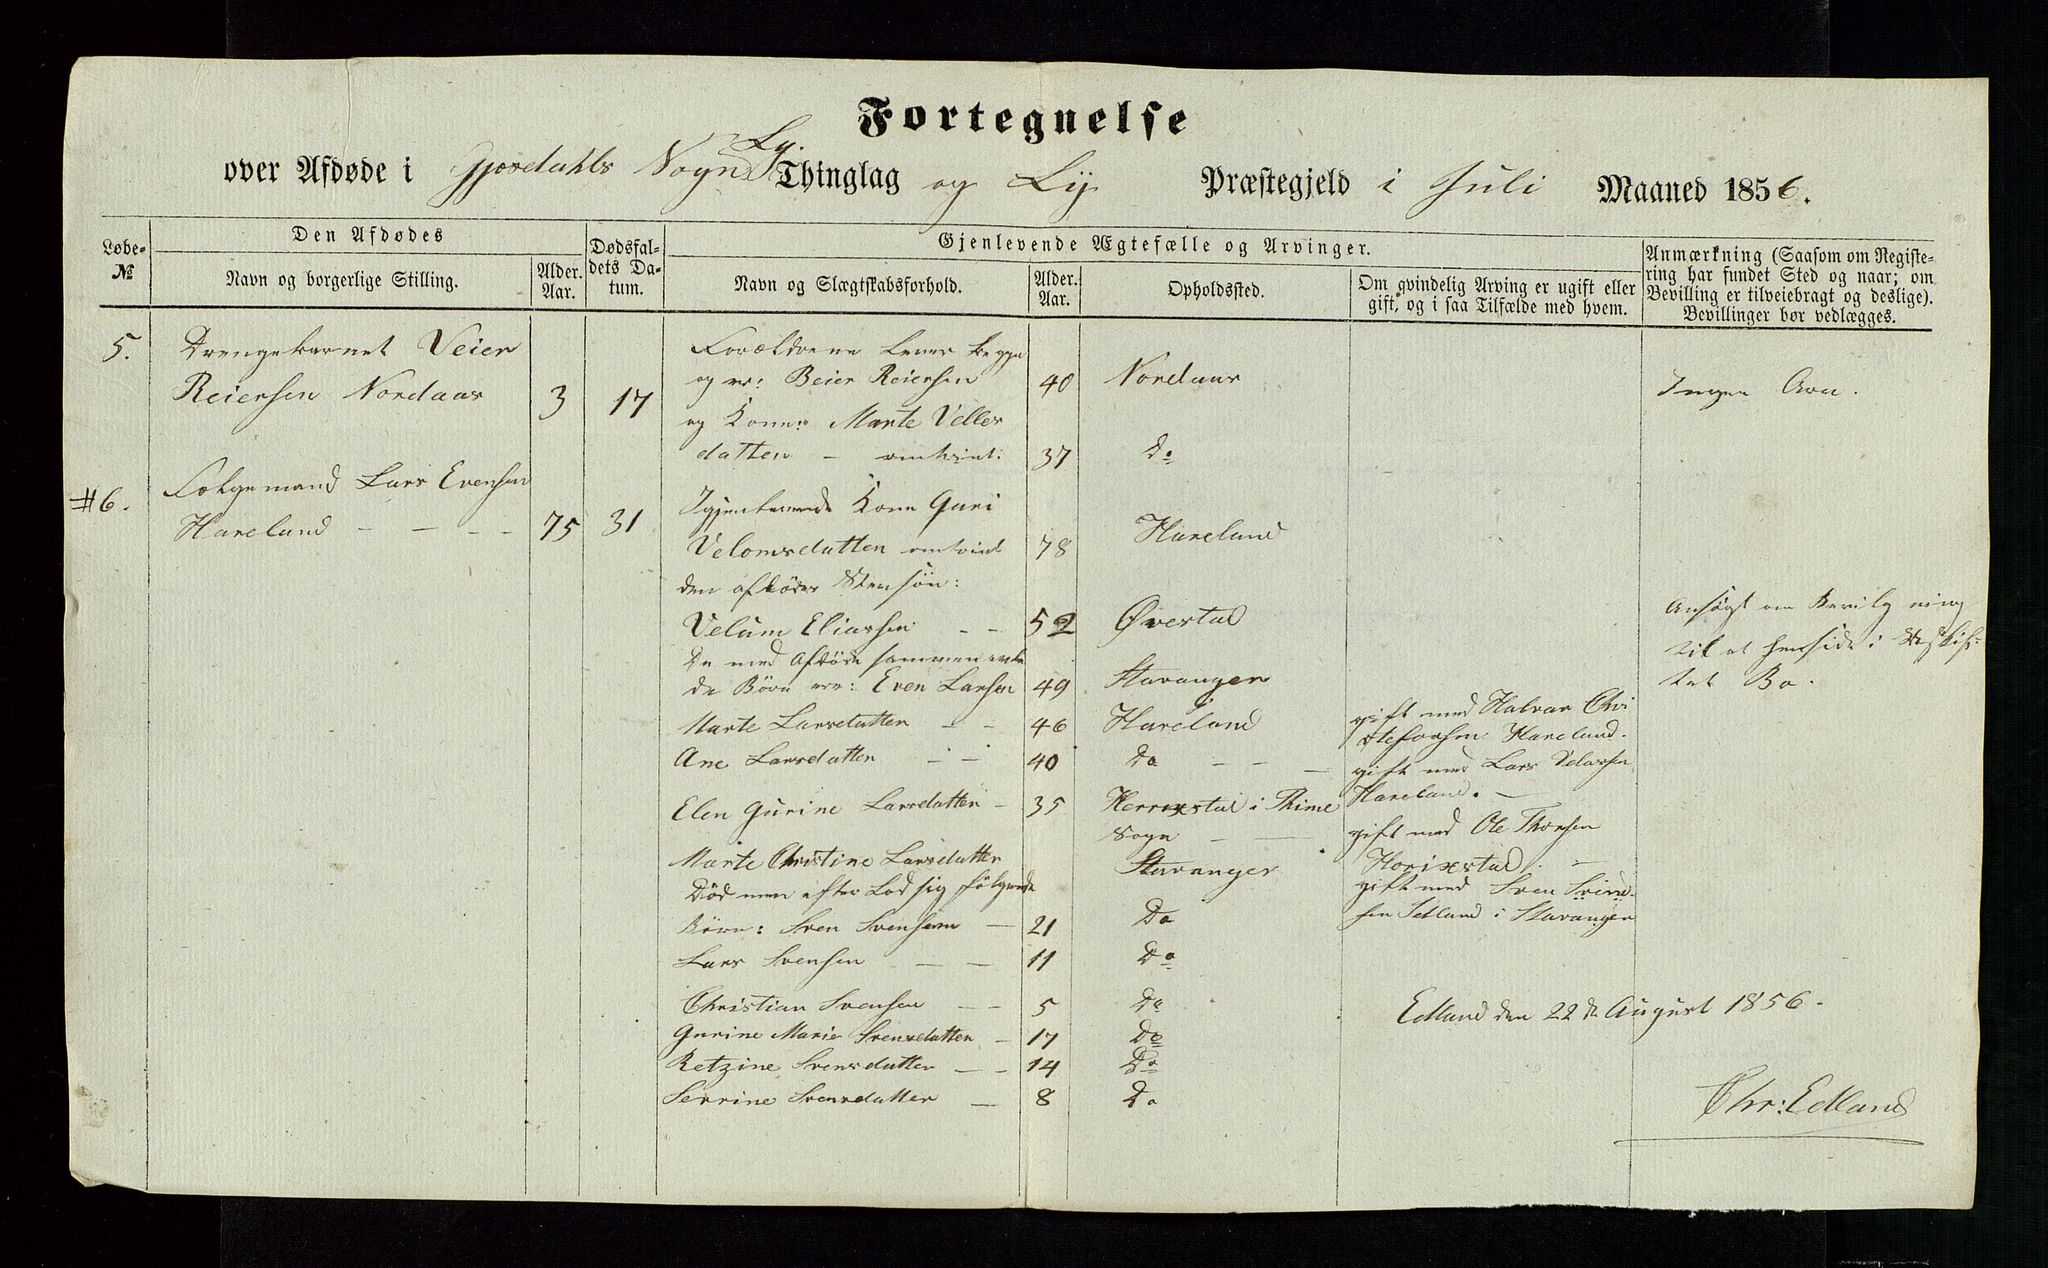 Fortegnelse
over Afdøde i Gjesdahls Sogn Ly Thinglag og Ly Præstegjeld i Juli Maaned 1856.
Løbe-
№
Den Afdødes
Navn og borgerlige Stilling.
Alder.
Aar.
Dødsfal-
dets Da-
tum.
Gjenlevende Ægtefælle og Arvinger.
Navn og Slægtskabsforhold.
Alder.
Aar.
Opholdssted.
Om qvindelig Arving er ugift eller
gift, og i saa Tilfælde med hvem.
Anmærkning (Saasom om Registe-
ring har fundet Sted og naar; om
Bevilling er tilveiebragt og deslige).
Bevillinger bør vedlægges.
5. Drengebarnet Veier
Reiersen Nordaas 3 17
Forældrene lever begge
og er: Beier Reiersen 40 Nordaas Ingen Arv.
og Kone: Marte Veller
datter - omtrint: 37 Do
#6. Folgemand Lars Evensen
Hareland - - - - 75 31
Igjenlevende Kone Guri
Velomsdatter omtrint 78 Hareland
den afdødes Stensøn:
Velum Eliassen - - 52 Øvestad
De med Afdøde sammen avle
de Børn ere: Even Larsen 49 Stavanger
Ansøgt om Bevilgning
til at hensidde i uskif-
tet Bo.
Marte Larsdatter - - 46 Hareland gift med Halvar Chri
stofersen Hareland.
Ane Larsdatter - - 40 Do - - - gift med Lars Velomsen
Hareland. -
Elen Gurine Larsdatter - 35 Herrixstad i Thime
Sogn - - gift med Ole Thorsen
Horixstad. -
Marte Christine Larsdatter Stavanger gift med Sven Svend-
sen Setland i Stavanger
Død men efter Lod sig følgende
Børn: Sven Svensen - 21 Do
Lars Svensen - - 11 Do
Christian Svensen - - 5 Do
Gurine Marie Svensdatter - 17 Do
Retzine Svensdatter - - 14 Do
Serrine Svensdatter - 8 Do
Edland den 22 de August 1856.
Chr: Edland